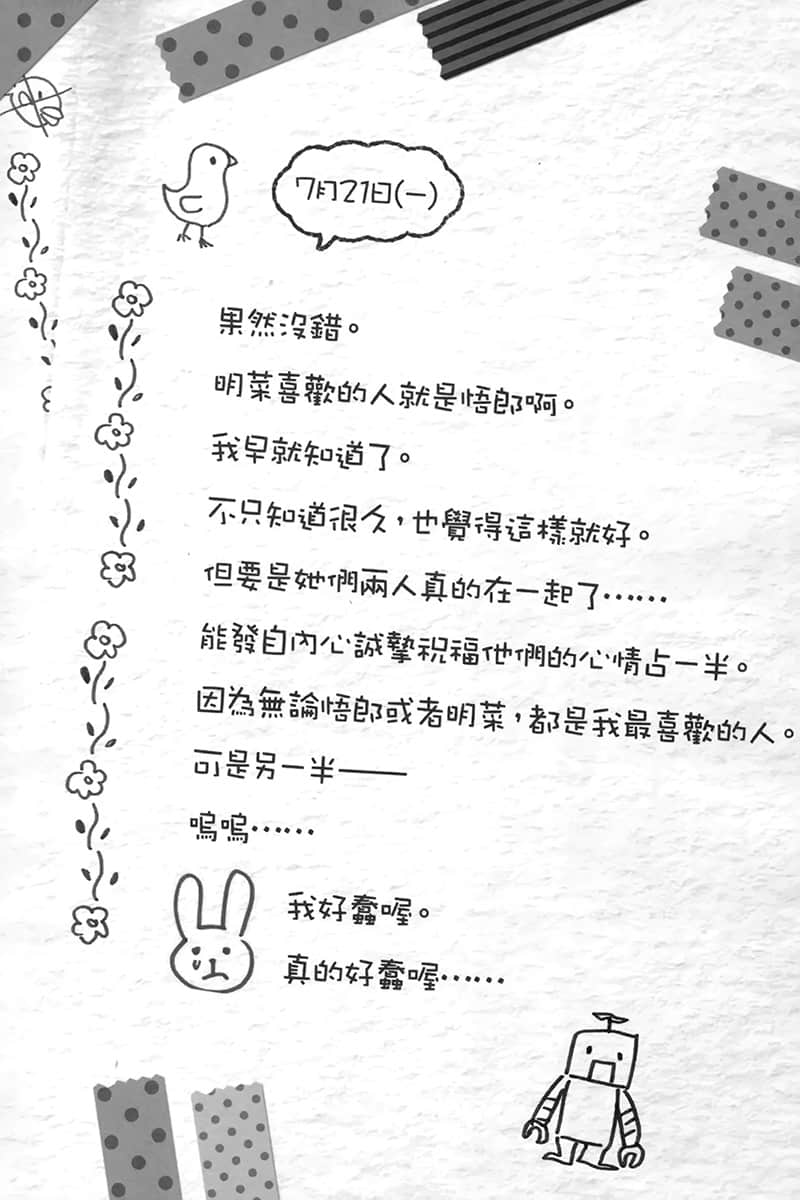 7月21日(一)
果然沒錯。
明菜喜歡的人就是悟郎啊。
我早就知道了。
不只知道很久，也覺得這樣就好。
但要是她們兩人真的在一起了……
能發自內心誠摯祝福他們的心情占一半。
因為無論悟郎或者明菜，都是我最喜歡的人。
可是另一半——
嗚嗚……
我好蠢喔。
真的好蠢喔……